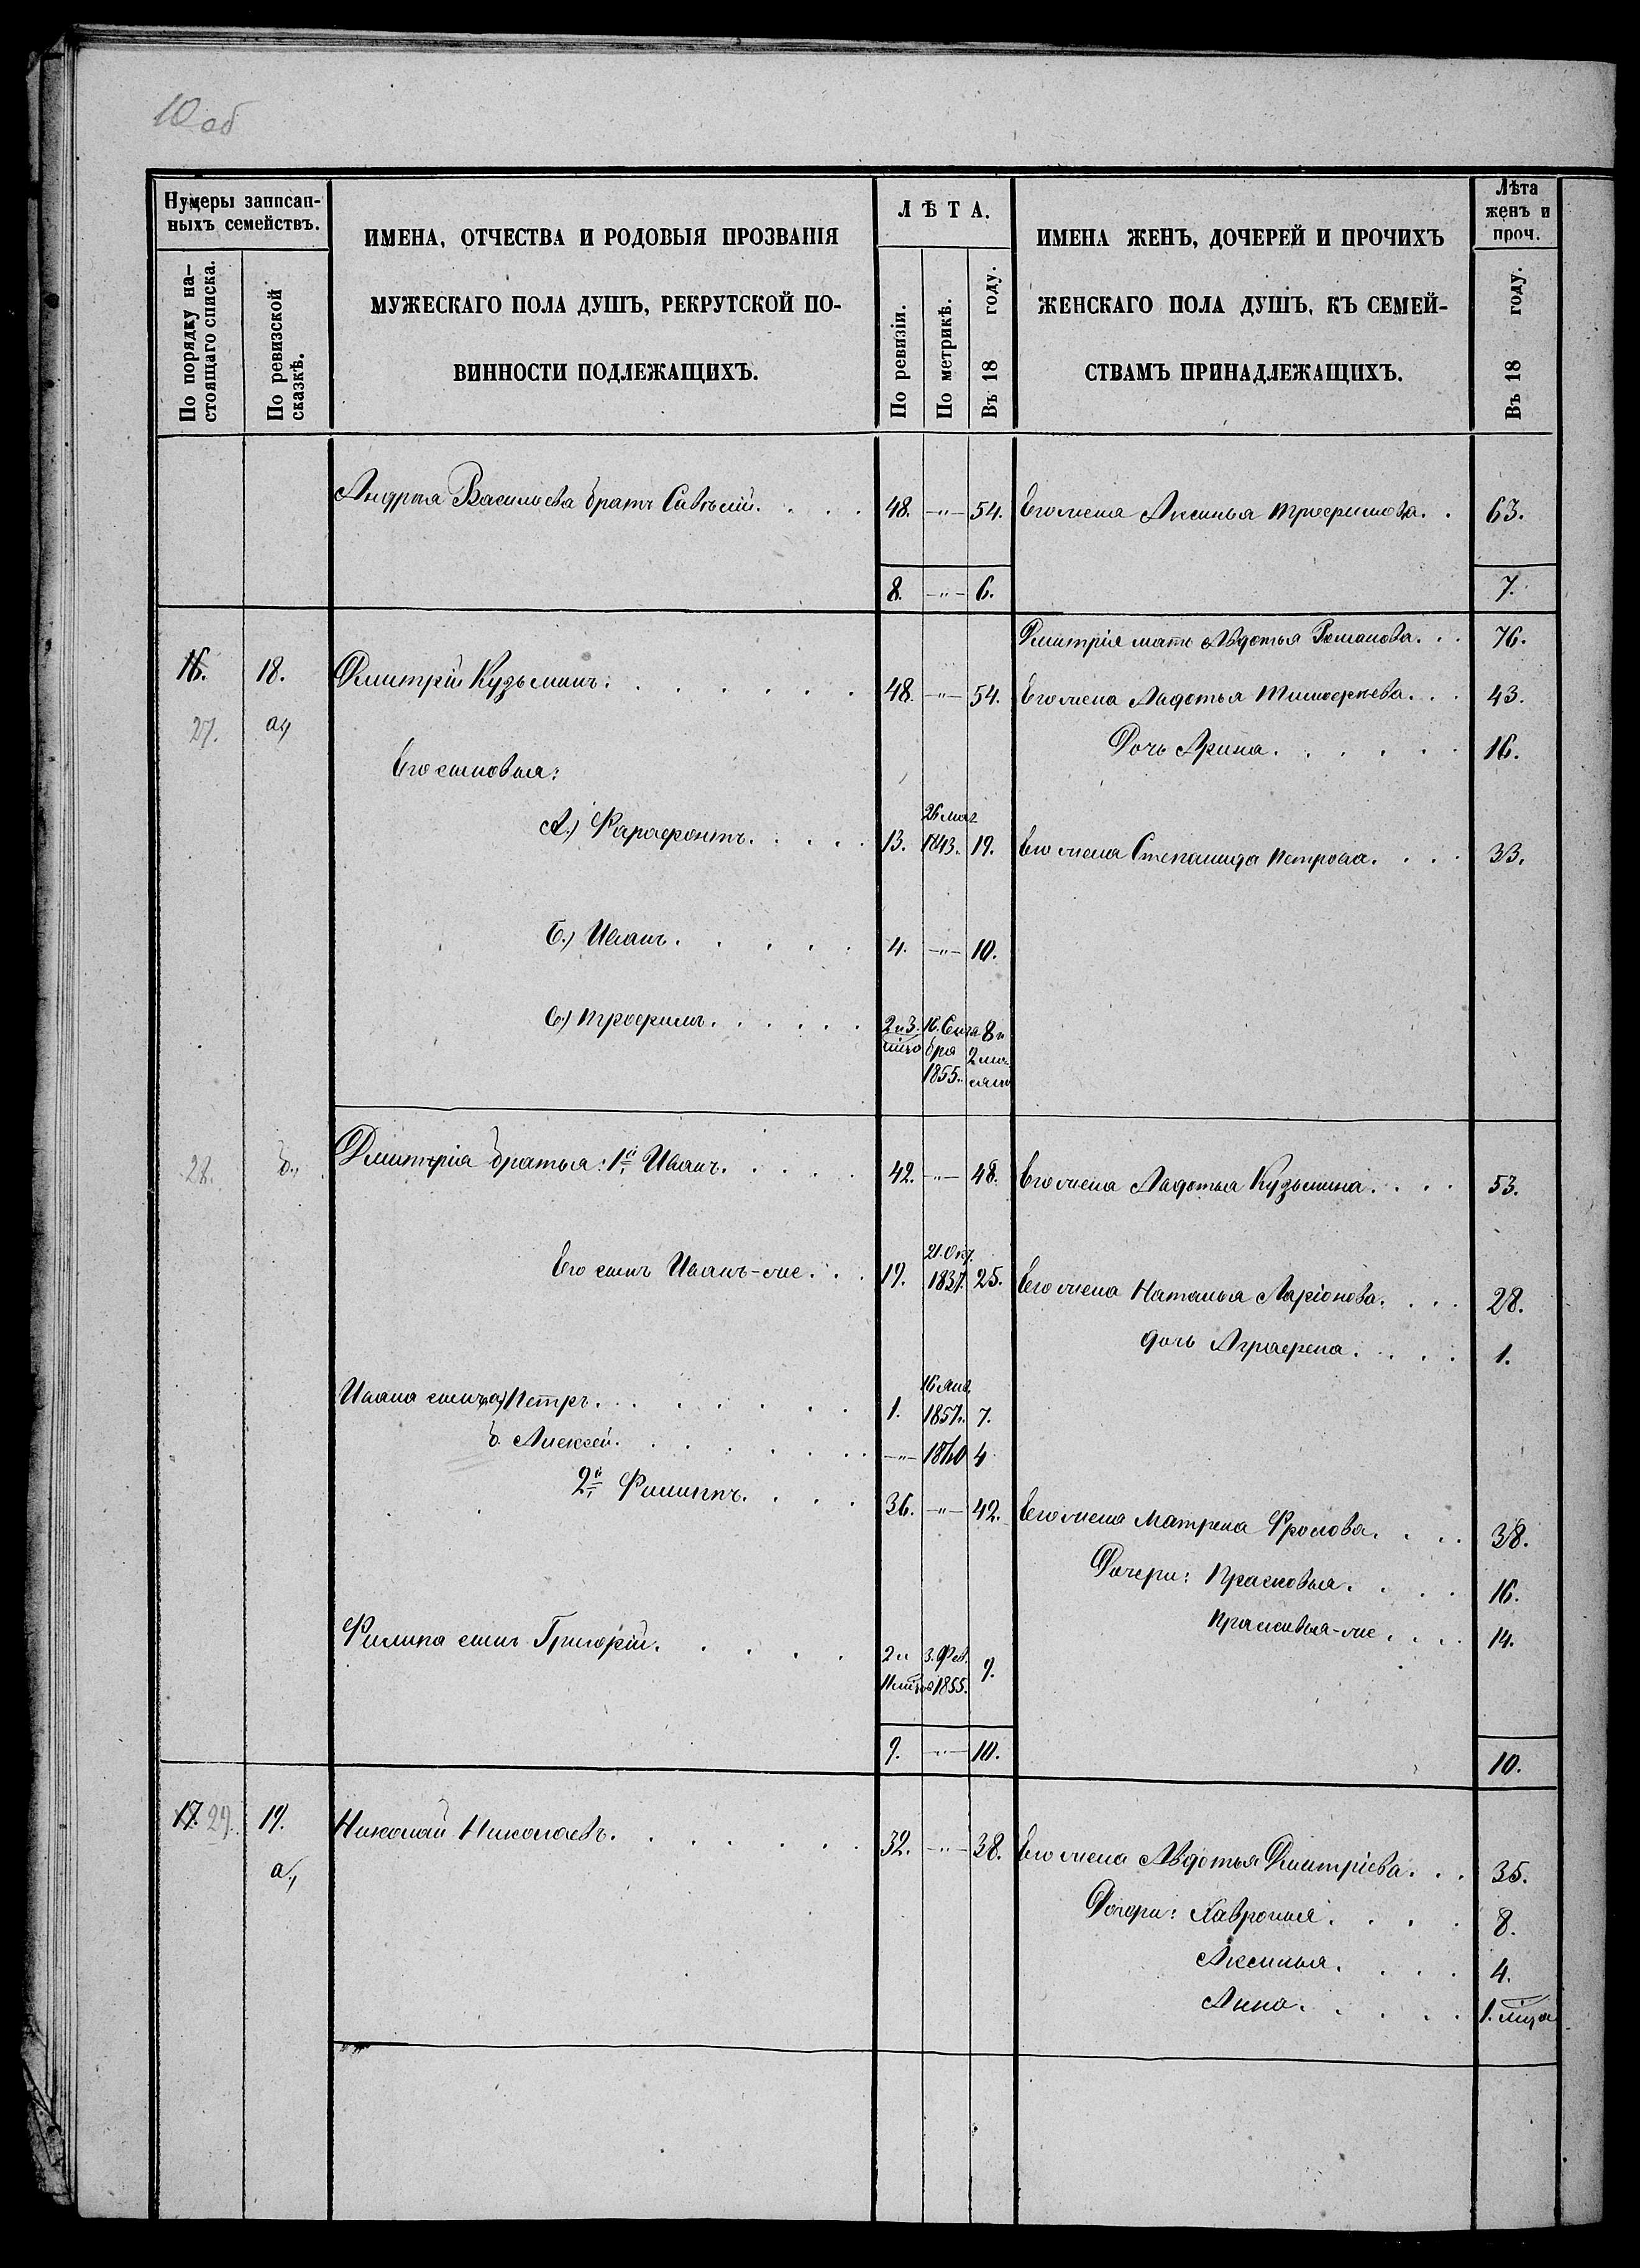 10 об
Нумеры записан-
ныхъ семействъ.
По порядку на-
стоящаго списка.
По ревизской
сказкѣ.
ИМЕНА, ОТЧЕСТВА И РОДОВЫЯ ПРОЗВАНІЯ
МУЖЕСКАГО ПОЛА ДУШЪ, РЕКРУТСКОЙ ПО-
ВИННОСТИ ПОДЛЕЖАЩИХЪ.
ЛѢТА.
По ревизіи.
По метрикѣ.
Въ 18 году.
ИМЕНА ЖЕНЪ, ДОЧЕРЕЙ И ПРОЧИХЪ
ЖЕНСКАГО ПОЛА ДУШЪ, КЪ СЕМЕЙ-
СТВАМЪ ПРИНАДЛЕЖАЩИХЪ.
Лѣта
женъ и
проч.
Въ 18 году.
Андрея Васильева братъ Савелій. . . . 48. -"- 54. Его жена Аксинья Трофимова. . 63.
8. -"- 6. 7.
Дмитрія мать Авдотья Романова. . . 76.
16. 18. Дмитрій Кузьминъ. . . . . . . 48. -"- 54. Его жена Авдотья Тимофеева. . . 43.
27. а.)
Дочь Арина. . . . . . 16.
Его сыновья:
А.) Фарафонтъ. . . . . 13. 26 мая 1843. 19. Его жена Степанида Петрова. . . . 33.
Б.) Иванъ. . . . . 4. -"- 10.
В.) Трофимъ. . . . . . 2 и 3. 16. Сентя 8 и
бря 2 мѣ-
1855.
28. б., Дмитрія братья: 1й Иванъ. . . . . 42. -"- 48. Его жена Авдотья Кузьмина. . . . 53.
Его сынъ Иванъ-же. . . 19. 21. Окт. 1837. 25. Его жена Наталья Ларіонова. . . . 28.
дочь Аграфена. . . . . 1.
Ивана сынъ а) Петръ. . . . . . . . 1. 16 Янв. 1857. 7.
б. Алексей. . . . . . . . -"- 1860 4
2й Филиппъ. . . . 36. -"- 42. Его жена Матрена Фролова. . . . 38.
Дочери: Прасковья. . . . 16.
Прасковья-же. . . . 14.
Филипа сынъ Григорій. . . . . . 2 и 3. Фев. 9.
11 1855.
9. -"- 10. 10.
17. 29. 19. Николай Николаевъ. . . . . . . 32. -"- 38. Его жена Авдотья Дмитріева. . . 35.
а.,
Дочери: Хавронья. . . . 8.
Аксинья. . . . 4.
Анна. . . . . 1. мѣца